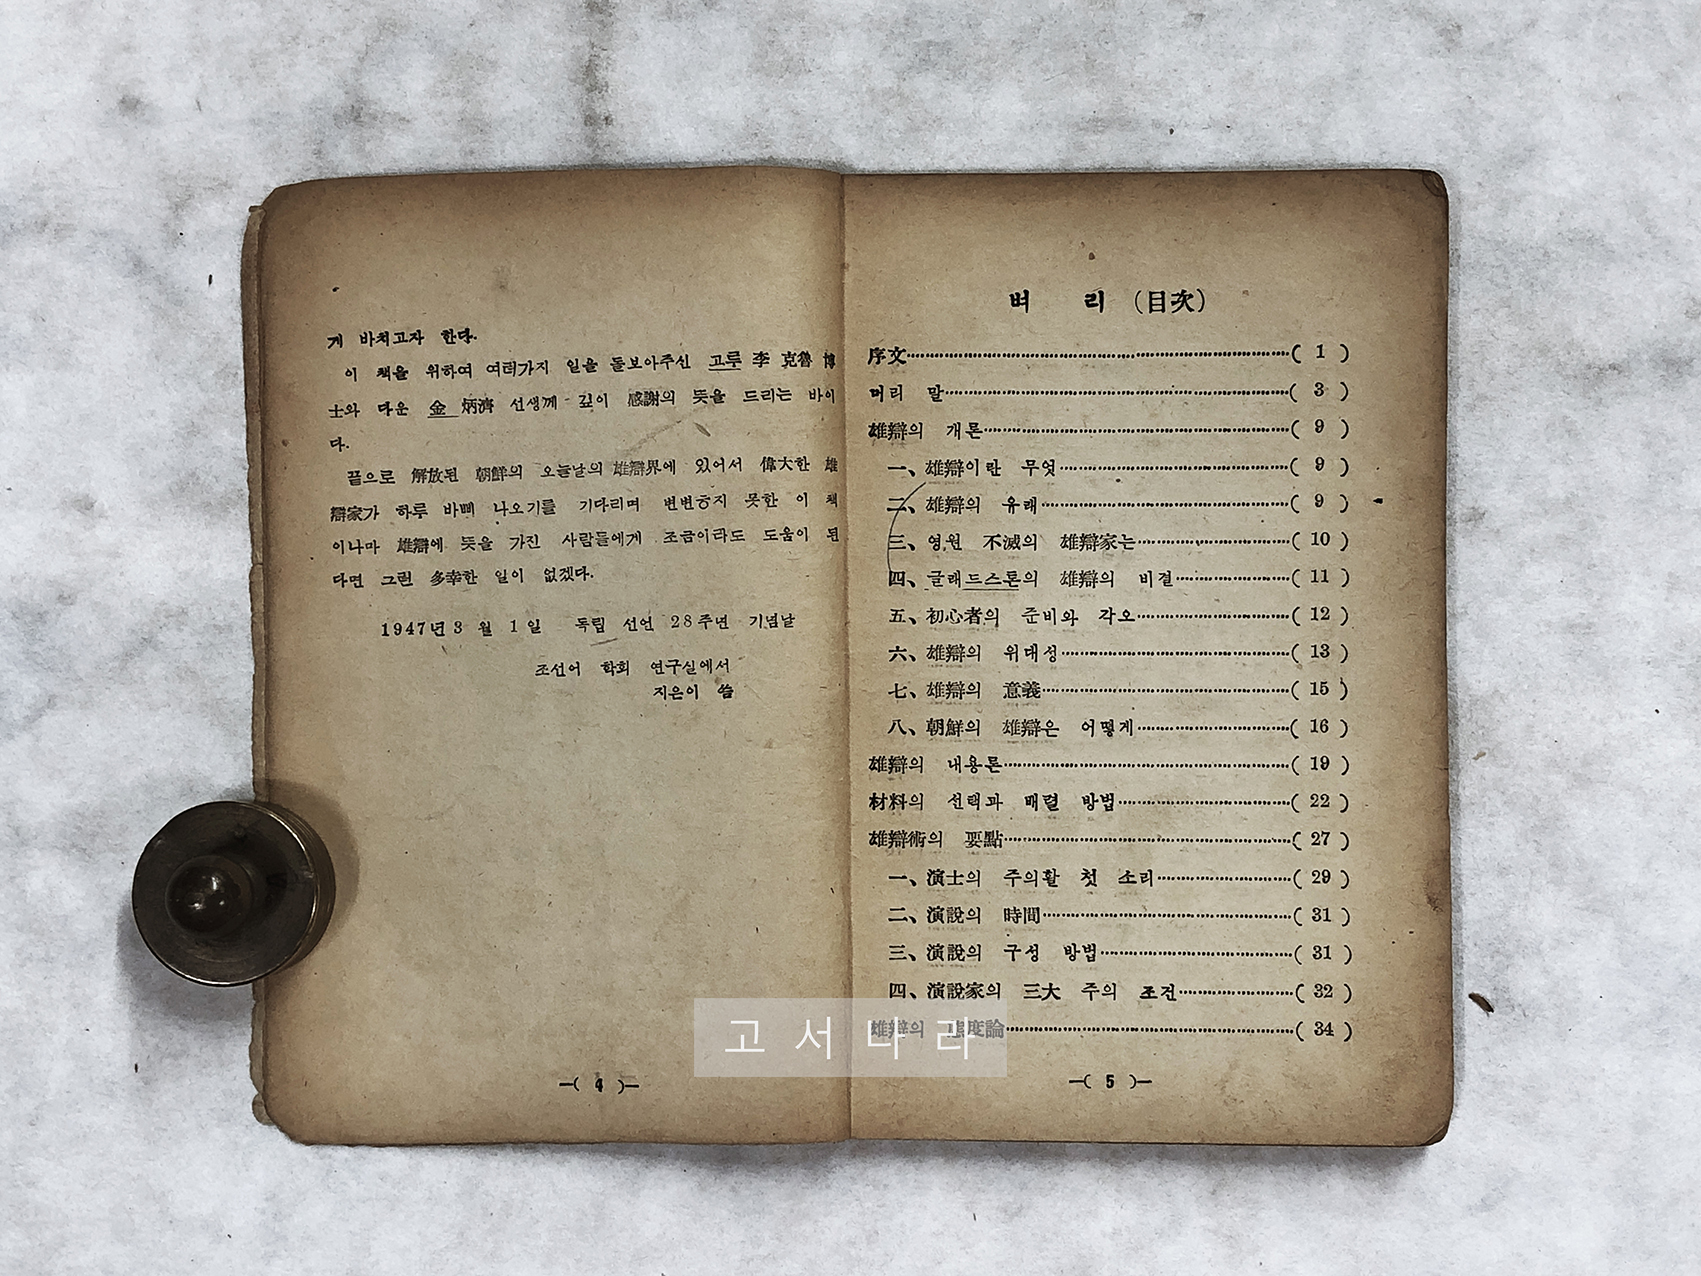 게 바치고자 한다.
이 책을 위하여 여러가지 일을 돌보아주신 고루 李 克魯 博
士와 다운 金 炳濟 선생께 깊이 感謝의 뜻을 드리는 바이
다.
끝으로 解放된 朝鮮의 오늘날의 雄辯界에 있어서 偉大한 雄
辯家가 하루 바삐 나오기를 기다리며 변변ㅎ지 못한 이 책
이나마 雄辯에 뜻을 가진 사람들에게 조금이라도 도움이 된
다면 그런 多幸한 일이 없겠다.
1947년 3 월 1 일 독립 선언 28주년 기념날
조선어 학회 연구실에서
지은이
—( 4 )—
벼 리 (目次)
序文……(1)
머리 말……(3)
雄辯의 개론……(9)
一、雄辯이란 무엇……(9)
二、雄辯의 유래……(9)
三、영원 不滅의 雄辯家는……(10)
四、글래드스톤의 雄辯의 비결……(11)
五、初心者의 준비와 각오……(12)
六、雄辯의 위대성……(13)
七、雄辯의 意義……(15)
八、朝鮮의 雄辯은 어떻게……(16)
雄辯의 내용론……(19)
材料의 선택과 배렬 방법……(22)
雄辯術의 要點……(27)
一、演士의 주의할 첫 소리……(29)
二、演說의 時間……(31)
三、演說의 구성 방법……(31)
四、演說家의 三大 주의 조건……(32)
雄辯의 態度論……(34)
—( 5 )—
고서나라